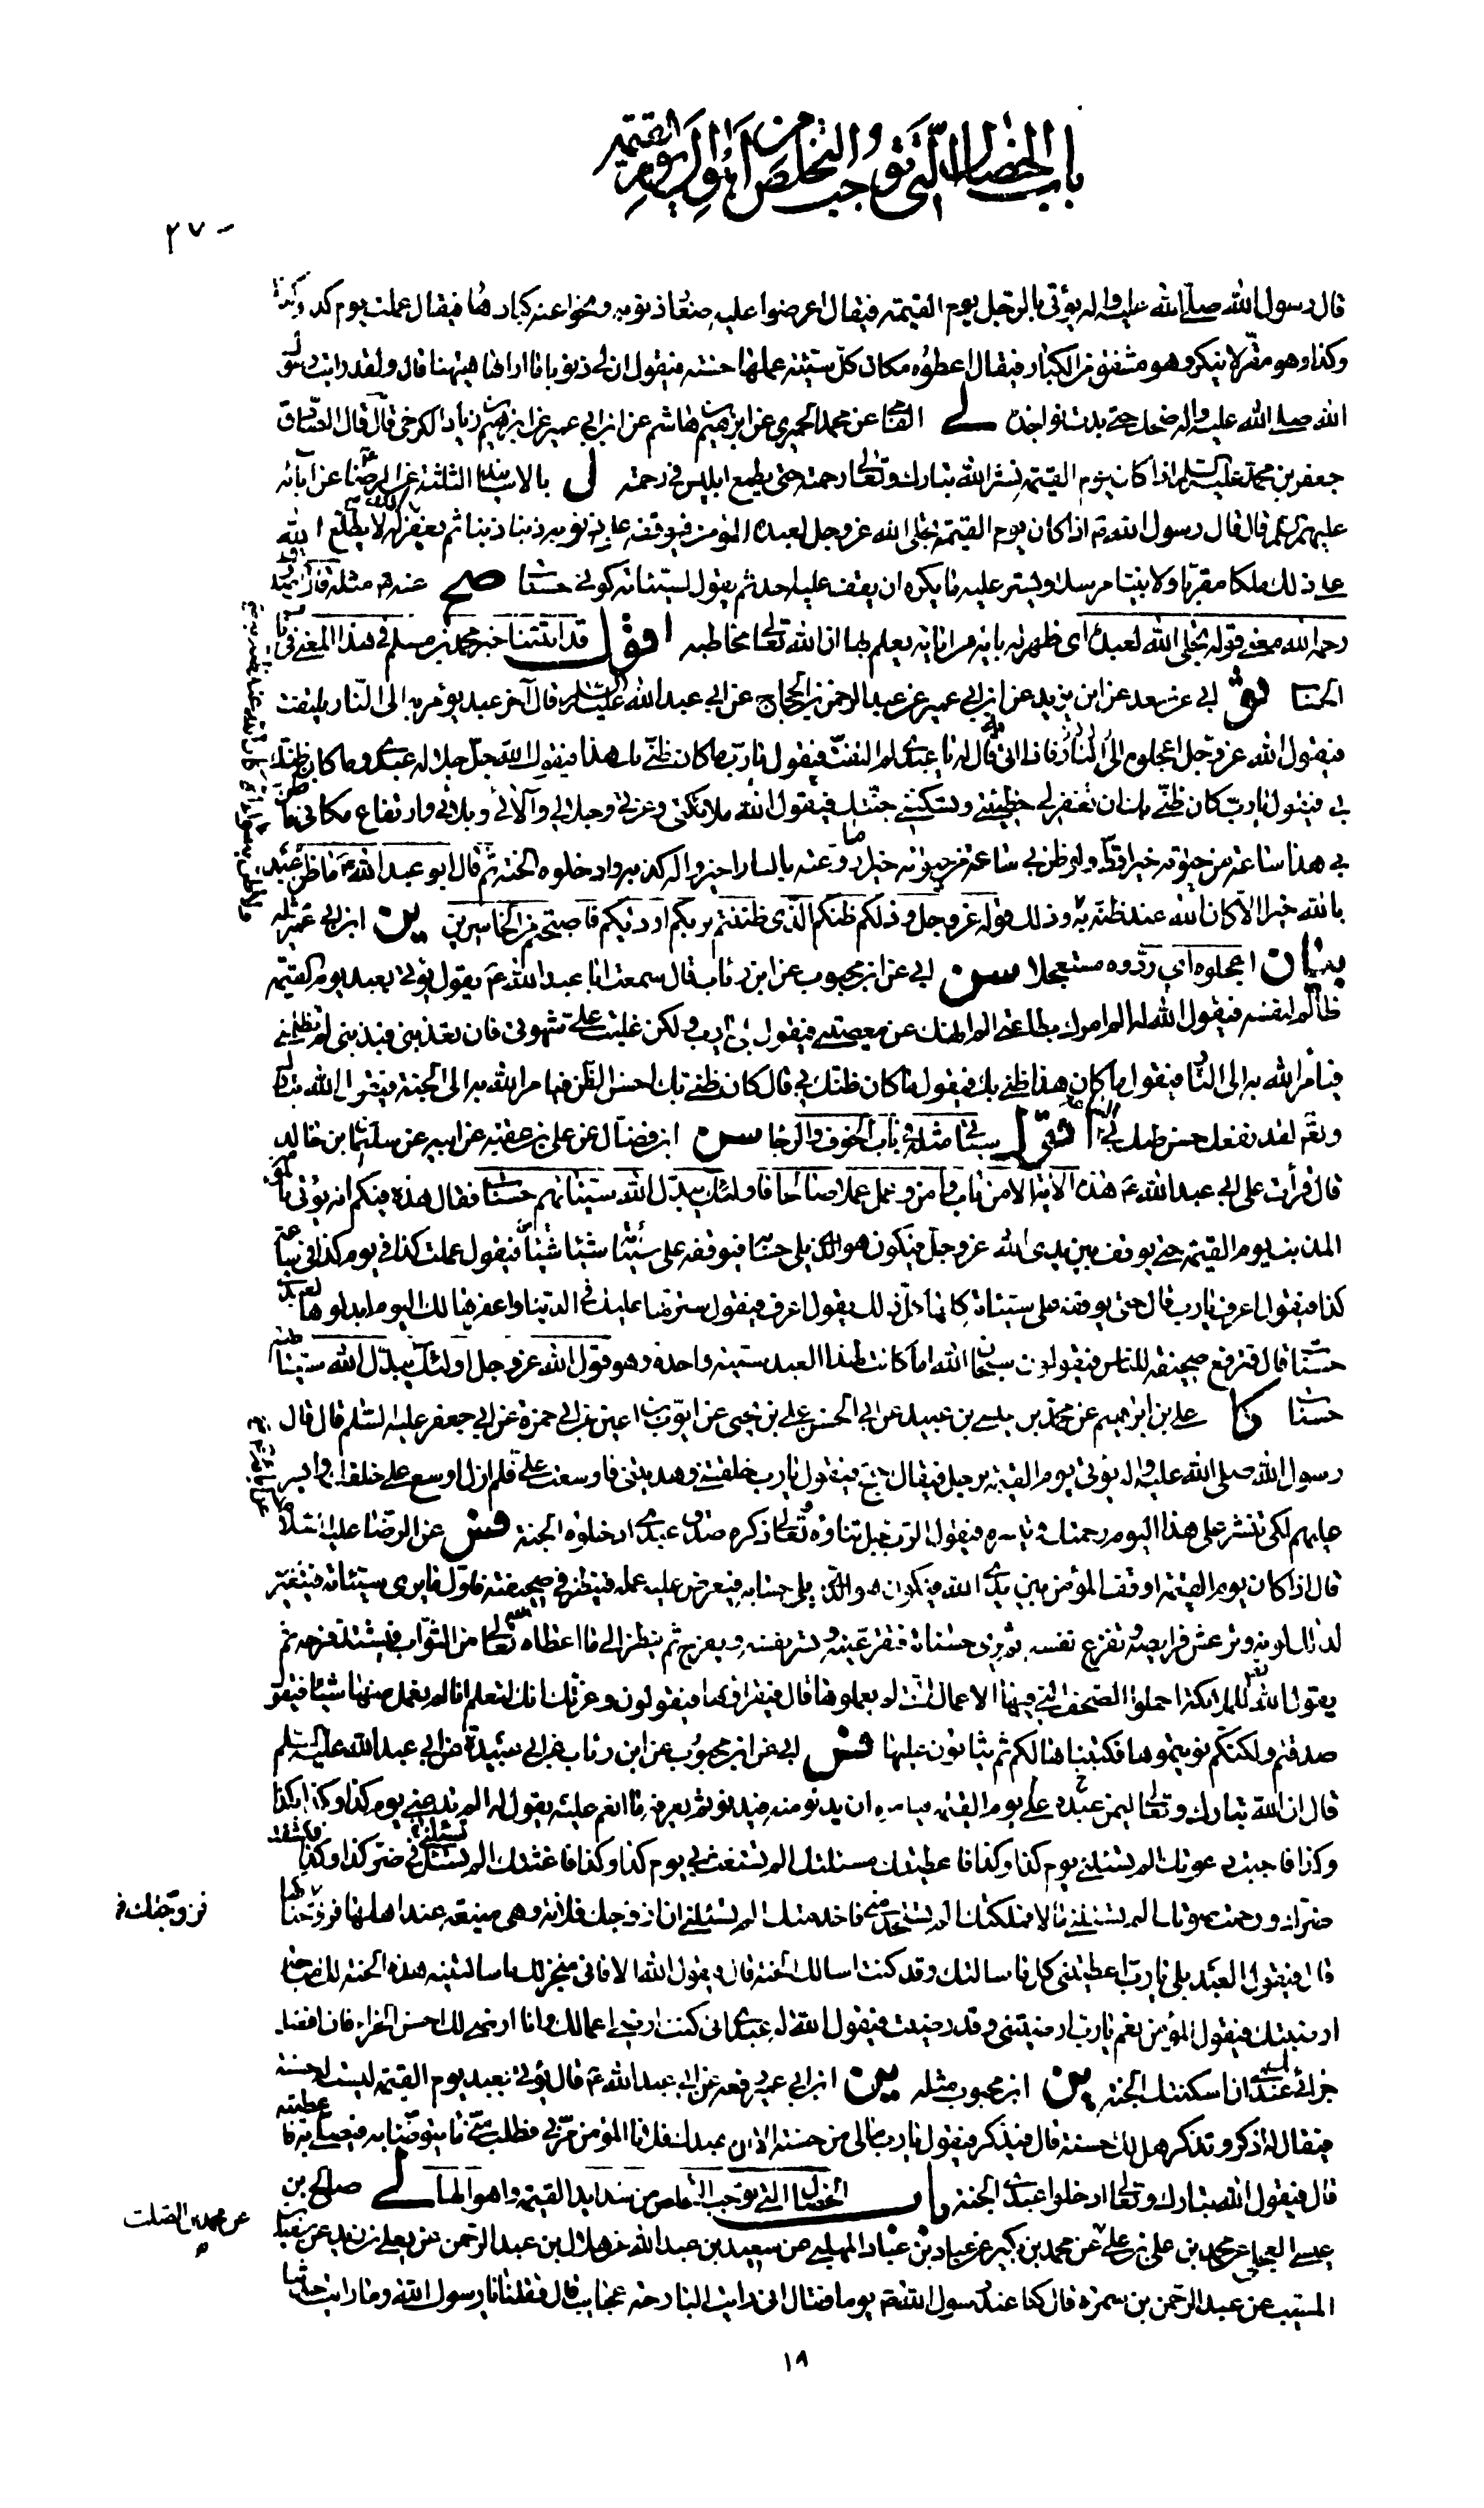 باب الخصال التی توجب التخلص من اهوال یوم القیمة
۲۷۰
قال رسول الله صلی الله علیه واله یؤتی بالرجل یوم القیمة فیقال اعرضوا علیه صغار ذنوبه ونحوا عنه کبارها فیقال عملت یوم کذا وکذا
وکذا وهو مقر لا ینکر وهو مشفق من الکبار فیقال اعطوه مکان کل سیئة عملها حسنة فیقول ان لی ذنوبا ما اراها هیهنا قال ولقد رایت رسول
الله صلی الله علیه واله ضحک حتی بدت نواجذه لی عن محمد الحمیری عن ابرهیم بن هاشم عن ابن ابی عمیر عن ابرهیم بن زیاد الکرخی قال قال الصادق
جعفر بن محمد علیه السلم اذا کان یوم القیمة نشر الله تبارک وتعالی رحمته حتی یطمع ابلیس فی رحمته ن بالاسانید الثلثة عن الرضا عن آبائه
علیهم السلم قال قال رسول الله ص اذا کان یوم القیمة تجلی الله عز وجل لعبده المؤمن فیوقفه علی ذنوبه ذنبا ذنبا ثم یغفر له لا یطلع الله
علی ذلک ملکا مقربا ولا نبیا مرسلا ویستر علیه ما یکره ان یقف علیه احد ثم یقول لسیئاته کونی حسنات صح عنه ع مثله
رحمه الله معنی قوله تجلی الله لعبده ای ظهر له بایة من ایاته یعلم بها ان الله تعالی مخاطبه اقول قد اثبتنا خبر محمد بن مسلم فی هذا المعنی فی باب
الحساب ثو ابی عن سعد عن ابن یزید عن ابن ابی عمیر عن عبد الرحمن بن الحجاج عن ابی عبد الله علیه السلم قال آخر عبد یؤمر به الی النار یلتفت
فیقول الله عز وجل اعجلوه فاذا اتی به قال له یا عبدی لم التفت فیقول یا رب ما کان ظنی بک هذا فیقول الله جل جلاله عبدی وما کان ظنک
بی فیقول یا رب کان ظنی بک ان تغفر لی خطیئتی وتسکننی جنتک فیقول الله ملائکتی وعزتی وجلالی وآلائی وبلائی وارتفاع مکانی ما ظن
بی هذا ساعة من حیوته خیرا قط ولو ظن بی ساعة من حیوته خیرا ما روعته بالنار اجیزوا له کذبه وادخلوه الجنة ثم قال ابو عبد الله ع ما ظن عبد
بالله خیرا الا کان الله عند ظنه به وذلک قوله عز وجل وذلکم ظنکم الذی ظننتم بربکم اردیکم فاصبحتم من الخاسرین ین ابن ابی عمیر مثله
بیان اعجلوه ای ردوه مستعجلا سن ابی عن ابن محبوب عن ابن رئاب قال سمعت ابا عبد الله ع یقول یؤتی بعبد یوم القیمة
ظالم لنفسه فیقول الله له الم امرک بطاعتی الم انهک عن معصیتی فیقول بلی یا رب ولکن غلبت علی شهوتی فان تعذبنی فبذنبی لم تظلمنی
فیامر الله به الی النار فیقول ما کان هذا ظنی بک فیقول ما کان ظنک بی قال کان ظنی بک احسن الظن فیامر الله به الی الجنة فیقول الله تبارک
وتعالی لقد نفعک حسن ظنک بی الساعة اقول سیاتی مثله فی باب الخوف والرجا سن ابن فضال عن علی بن عقبة عن ابیه عن سلیمان بن خالد
قال قرأت علی ابی عبد الله ع هذه الایة الا من تاب وامن وعمل عملا صالحا فاولئک یبدل الله سیئاتهم حسنات فقال هذه فیکم انه یؤتی بالمؤمن
المذنب یوم القیمة حتی یوقف بین یدی الله عز وجل فیکون هو الذی یلی حسابه فیوقفه علی سیئاته شیئا شیئا فیقول عملت کذا فی یوم کذا فی ساعة
کذا فیقول اعرف یا رب قال حتی یوقفه علی سیئاته کلها کل ذلک یقول اعرف فیقول سترتها علیک فی الدنیا واغفرها لک الیوم ابدلوها لعبدی
حسنات قال فترفع صحیفته للناس فیقولون سبحان الله اما کانت لهذا العبد سیئة واحدة وهو قول الله عز وجل اولئک یبدل الله سیئاتهم
حسنات کا علی بن ابرهیم عن محمد بن عیسی بن عبید عن ابی الحسن علی بن یحیی عن ایوب بن اعین عن ابی حمزة عن ابی جعفر علیه السلم قال قال
رسول الله صلی الله علیه واله یؤتی یوم القیمة برجل فیقال احتج فیقول یا رب خلقتنی وهدیتنی فاوسعت علی فلم ازل اوسع علی خلقک وایسر
علیهم لکی تنشر علی هذا الیوم رحمتک وتیسره فیقول الرب جل ثناؤه وتعالی ذکره صدق عبدی ادخلوه الجنة فس عن الرضا علیه السلام
قال اذا کان یوم القیمة اوقف المؤمن بین یدی الله فیکون هو الذی یلی حسابه فیعرض علیه عمله فینظر فی صحیفته فاول ما یری سیئاته فیتغیر
لذلک لونه وترعش فرایصه وتفزع نفسه ثم یری حسناته فتقر عینه وتسر نفسه ویفرح ثم ینظر الی ما اعطاه الله تعالی من الثواب فیشتد فرحه ثم
یقول الله تعالی للملائکة احملوا الصحف التی فیها الاعمال التی لم یعملوها قال فیقراونها فیقولون وعزتک انک لتعلم انا لم نعمل منها شیئا فیقول
صدقتم ولکنکم نویتموها فکتبناها لکم ثم یثابون علیها فس ابی عن ابن محبوب عن ابن رئاب عن ابی عبیدة عن ابی عبد الله علیه السلم
قال ان الله تبارک وتعالی لیمن علی عبده یوم القیمة فیامره ان یدنو منه فیدنو ثم یعرفه ما انعم علیه یقول له الم تدعنی یوم کذا وکذا بکذا
وکذا فاجبت دعوتک الم تسئلنی یوم کذا وکذا فاعطیتک مسئلتک الم تستغث بی یوم کذا وکذا فاغثتک الم تسئلنی فی ضر کذا وکذا فکشفت
ضرک ورحمت صوتک الم تسئلنی مالا فملکتک الم تستخدمنی فاخدمتک الم تسئلنی ان ازوجک فلانة وهی منیعة عند اهلها فزوجناکها
فزوجتک خ
قال فیقول العبد بلی یا رب اعطیتنی کل ما سالتک وقد کنت اسالک الجنة قال فیقول الله الا فانی منجز لک ما سالتنیه هذه الجنة لک مباحا
ارضیتک فیقول المؤمن نعم یا رب ارضیتنی وقد رضیت فیقول الله له عبدی انی کنت ارضی اعمالک وانا ارضی لک احسن الجزاء فان افضل
جزائی عندی ان اسکنتک الجنة ین ابن محبوب مثله ین ابن ابی عمیر رفعه عن ابی عبد الله ع قال یؤتی بعبد یوم القیمة لیست له حسنة
فیقال له اذکر وتذکر هل لک حسنة قال فیذکر فیقول یا رب مالی من حسنة الا ان عبدک فلانا المؤمن مر بی فطلب منی ماء یتوضأ به فیصلی به فاعطیته
قال فیقول الله تبارک وتعالی ادخلوا عبدی الجنة باب الخصال التی توجب التخلص من شداید القیمة واهوالها لی صالح بن
عیسی العجلی عن محمد بن علی بن علی عن محمد بن بکیر عن عباد بن عباد المهلبی عن سعید بن عبد الله عن هلال بن عبد الرحمن عن یعلی بن زید عن سعید بن
عن محمد بن الصلت
المسیب عن عبد الرحمن بن سمرة قال کنا عند رسول الله ص یوما فقال انی رایت البارحة عجایب قال فقلنا یا رسول الله وما رایت حدثنا
۱۹